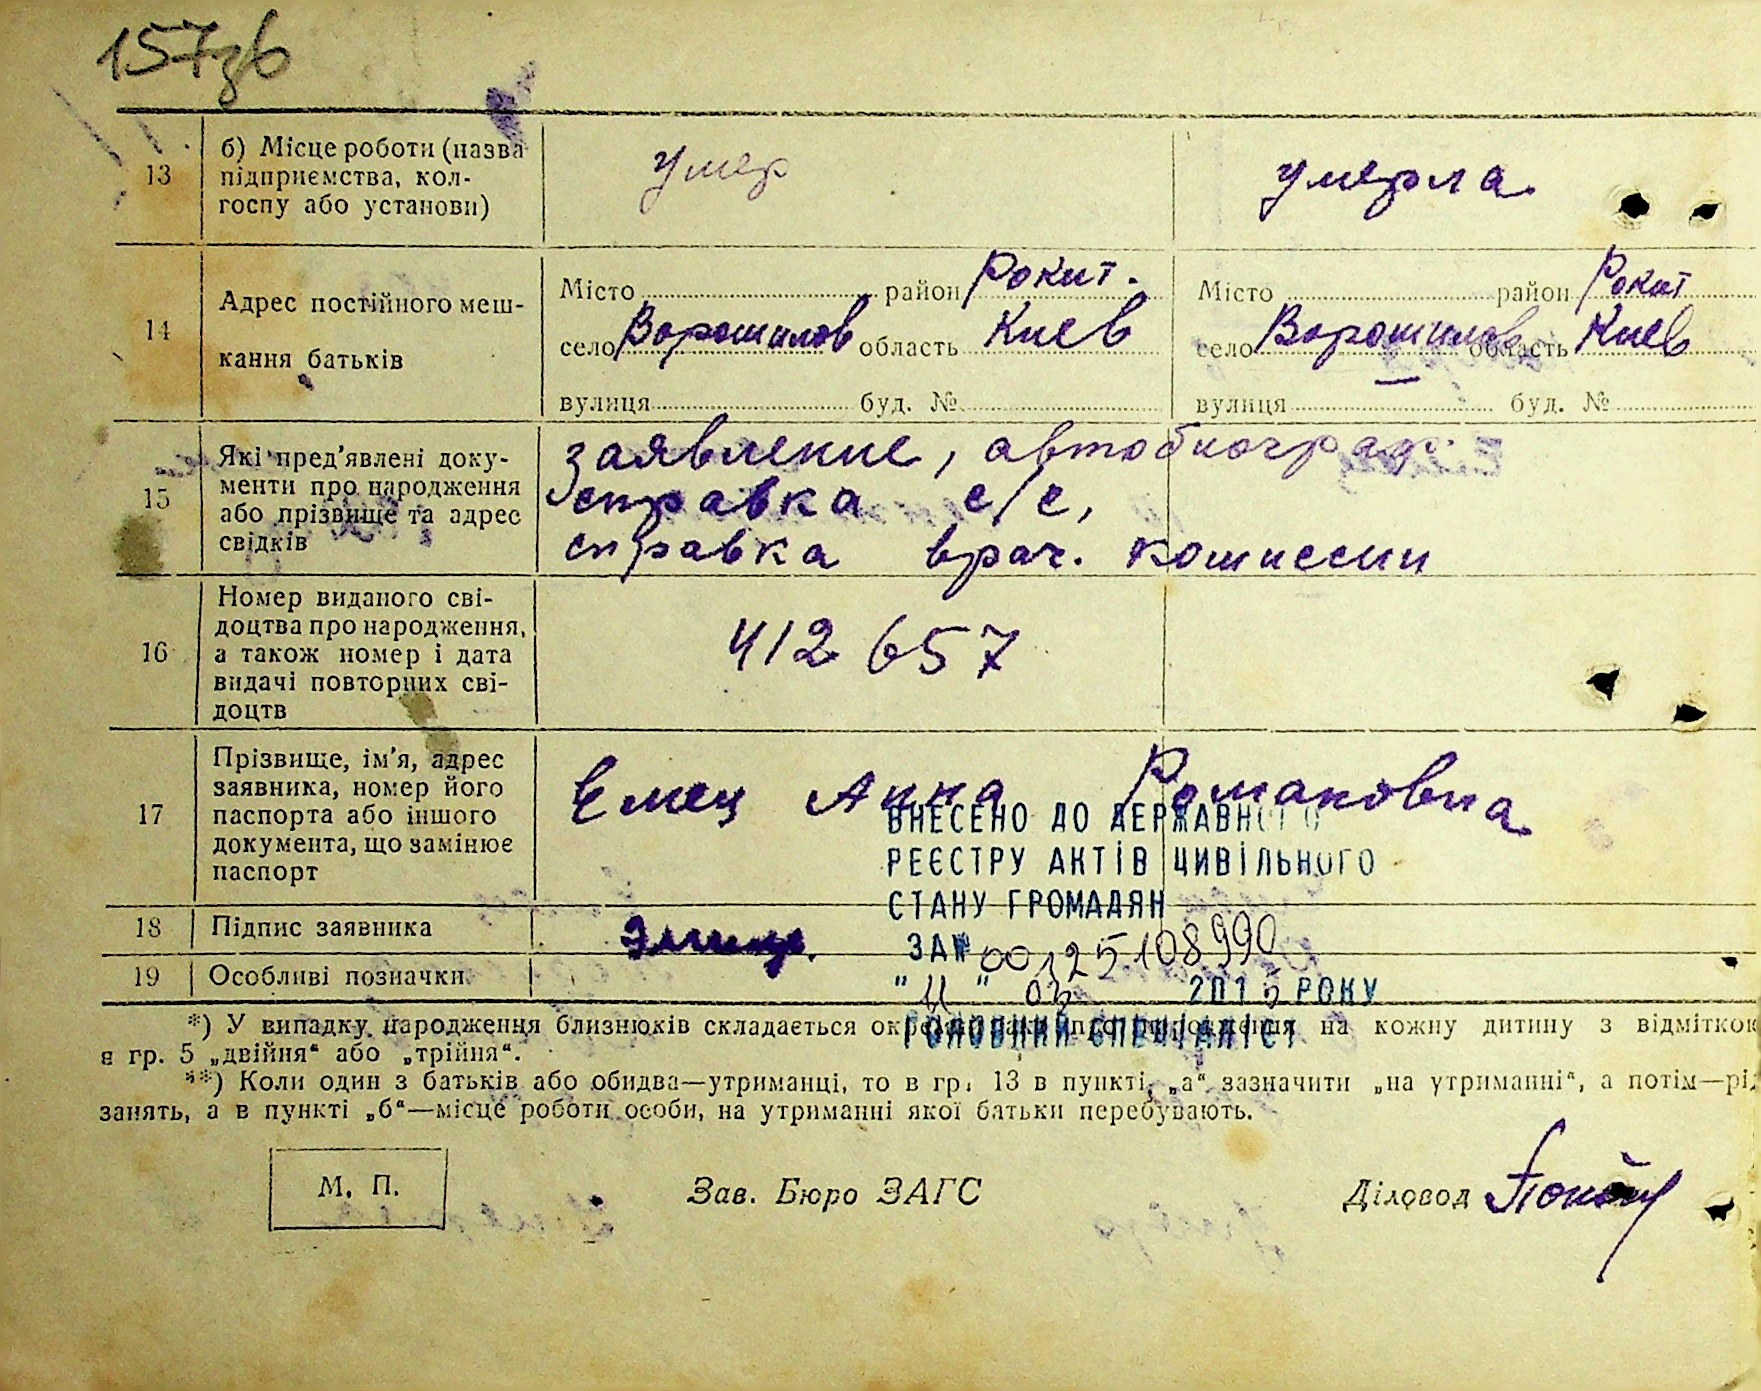 157зв
13
б) Місце роботи (назва
підприємства, кол-
госпу або установи)
умер
умерла
14
Адрес постійного меш-
кання батьків
Місто район Рокит.
село Ворошилов область Киев
вулиця буд. №
Місто район Рокит
село Ворошилов область Киев
вулиця буд. №
15
Які пред'явлені доку-
менти про народження
або прізвище та адрес
свідків
заявление, автобиограф.
справка с/с,
справка врач. комиссии
16
Номер виданого сві-
доцтва про народження,
а також номер і дата
видачі повторних сві-
доцтв
412657
17
Прізвище, ім'я, адрес
заявника, номер його
паспорта або іншого
документа, що замінює
паспорт
Емец Анна Романовна
ВНЕСЕНО ДО ДЕРЖАВНОГО
РЕЄСТРУ АКТІВ ЦИВІЛЬНОГО
СТАНУ ГРОМАДЯН
ЗА № 00125108990
" 11 " 03 2015 РОКУ
ГОЛОВНИЙ СПЕЦІАЛІСТ
18
Підпис заявника
19
Особливі позначки
*) У випадку народження близнюків складається про народження на кожну дитину з відміткою
в гр. 5 „двійня“ або „трійня“.
**) Коли один з батьків або обидва—утриманці, то в гр. 13 в пункті „а“ зазначити „на утриманні“, а потім—рід
занять, а в пункті „б“—місце роботи особи, на утриманні якої батьки перебувають.
М. П.
Зав. Бюро ЗАГС
Діловод